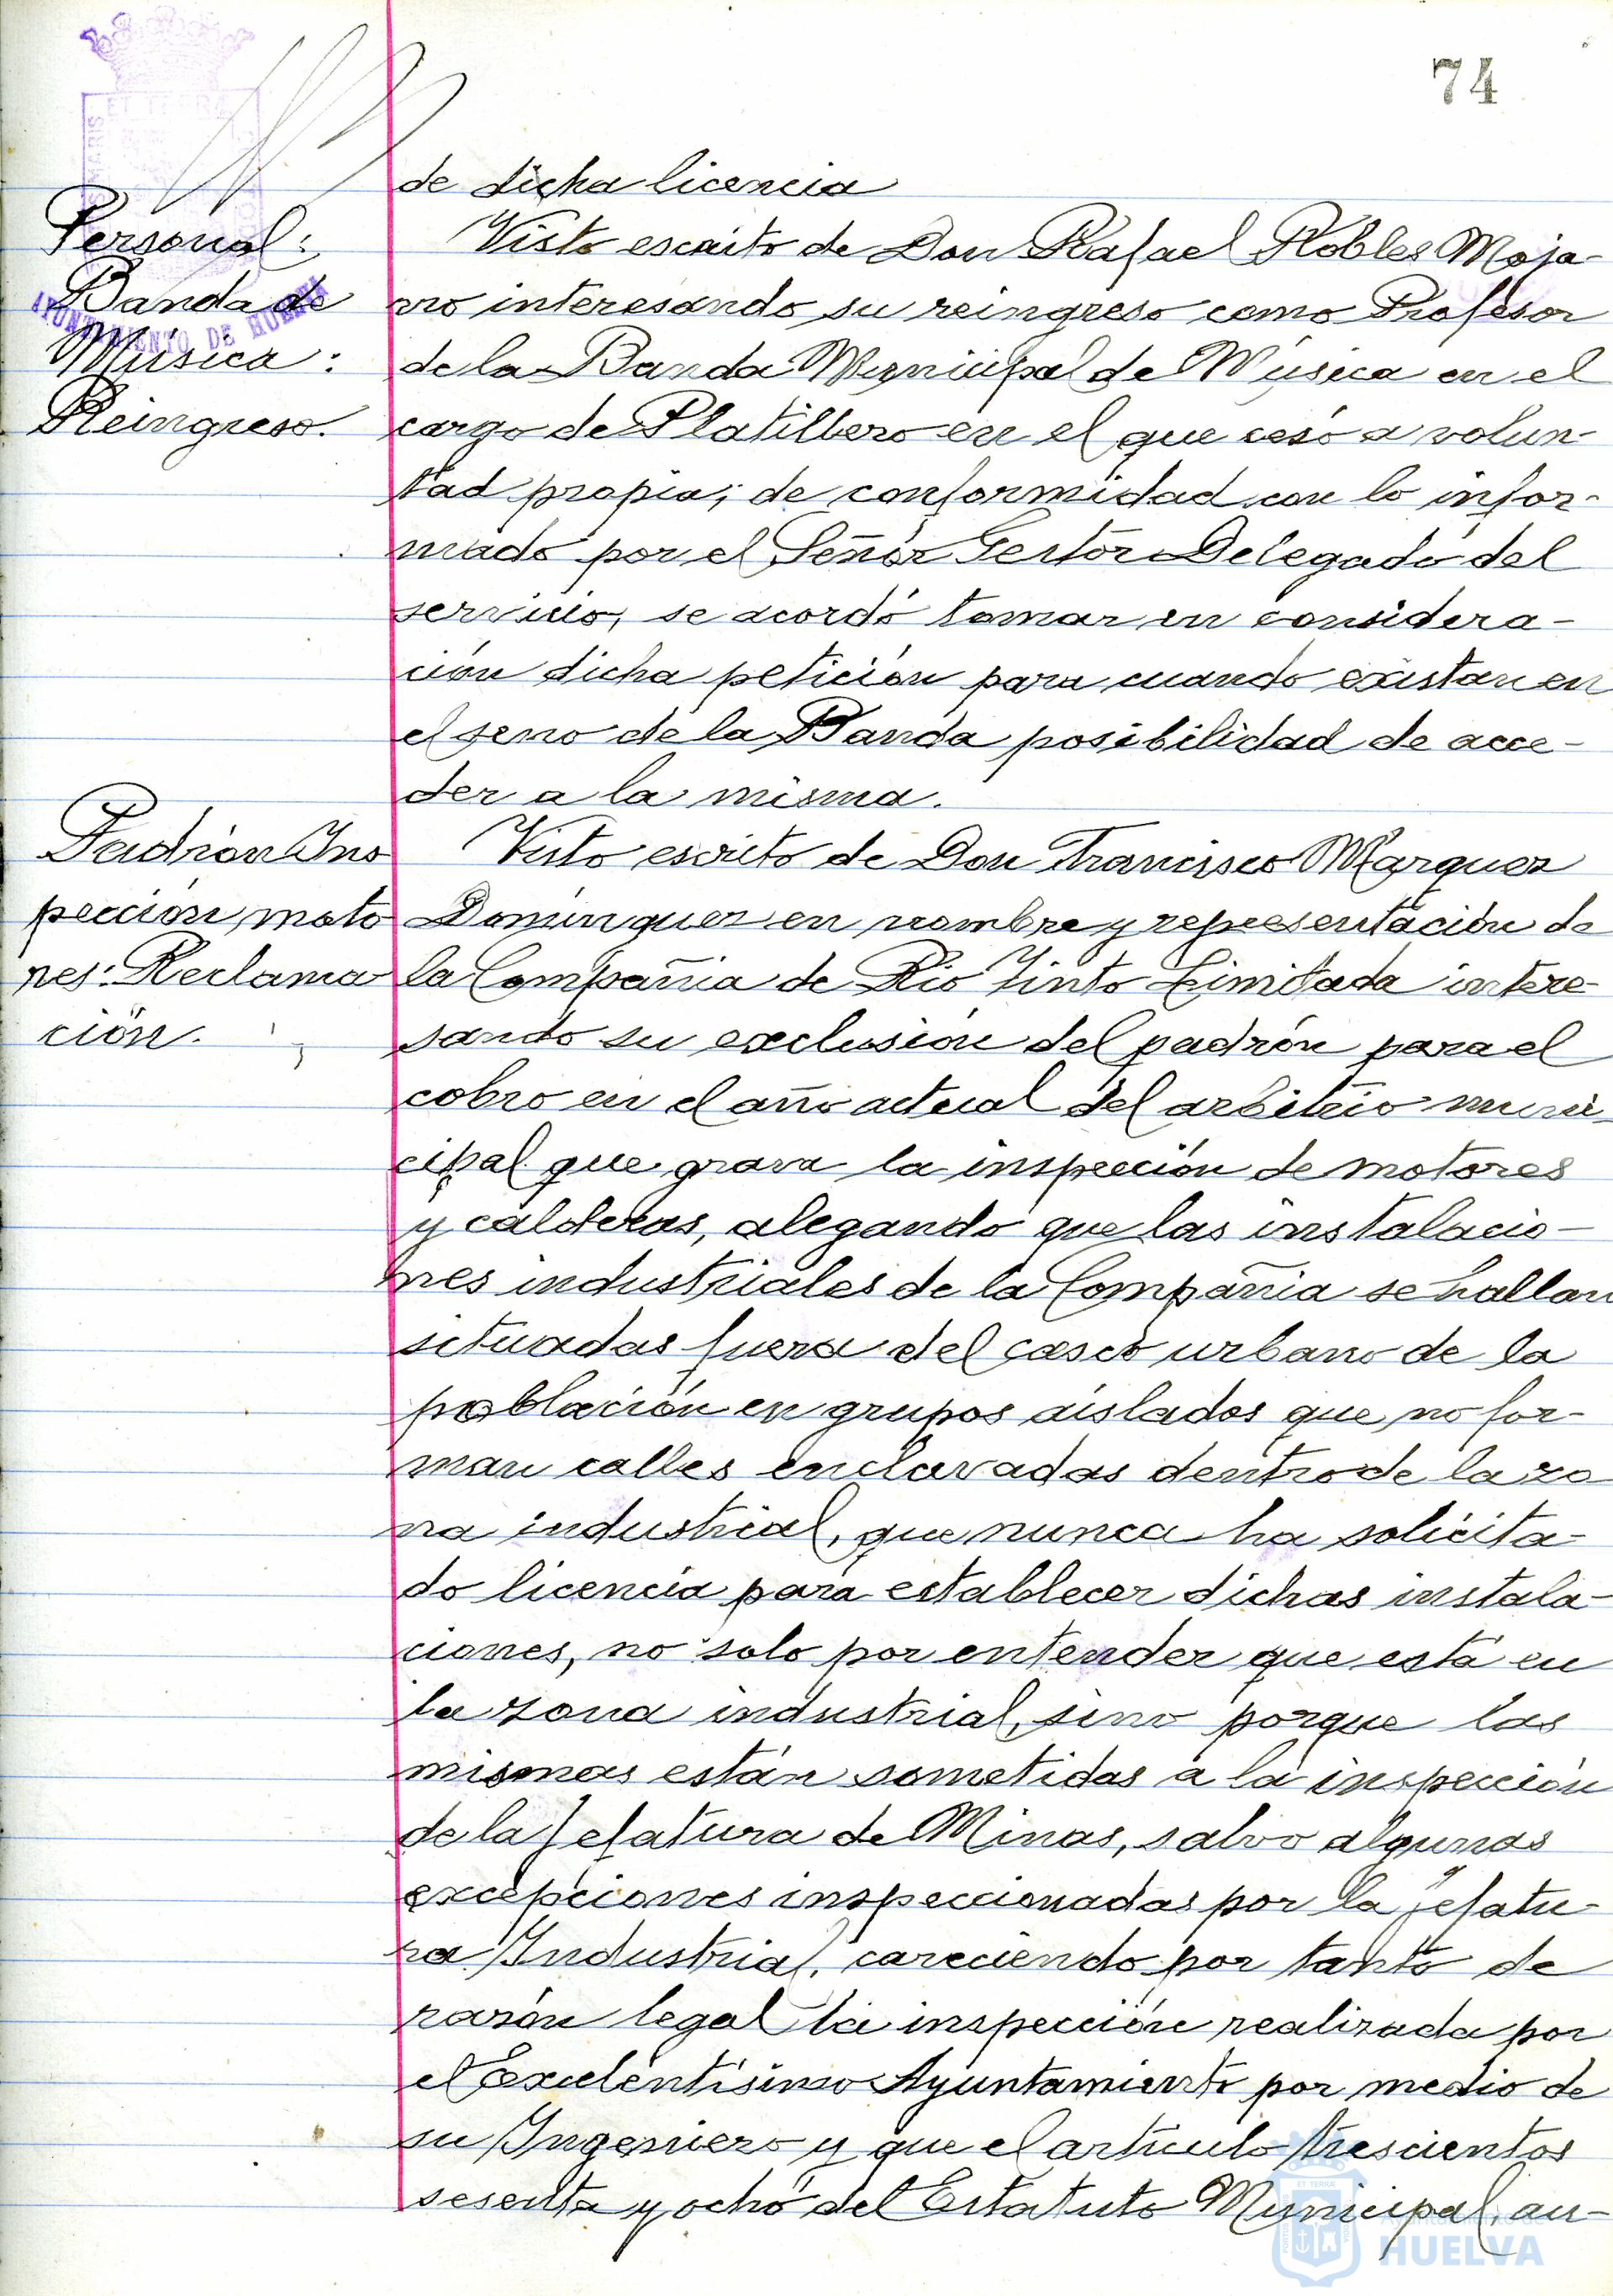 74
de dicha licencia
Personal:
Banda de
Música:
Reingreso.
Visto escrito de Don Rafael Robles Moja-
rro interesando su reingreso como Profesor
de la Banda Municipal de Música en el
cargo de Platillero en el que cesó a volun-
tad propia; de conformidad con lo infor-
mado por el Señor Gestor Delegado del
servicio, se acordó tomar en considera-
ción dicha petición para cuando existan en
el seno de la Banda posibilidad de acce-
der a la misma.
Padrón Ins
pección moto
res: Reclama
ción.
Visto escrito de Don Francisco Marquez
Dominguez en nombre y representación de
la Compañia de Rio Tinto Limitada intere-
sando su exclusión del padrón para el
cobro en el año actual del arbitrio muni-
cipal que grava la inspección de motores
y calderas, alegando que las instalacio-
nes industriales de la Compañia se hallan
situadas fuera del casco urbano de la
población en grupos aislados que no for-
man calles enclavadas dentro de la zo
na industrial, que nunca ha solicita-
do licencia para establecer dichas instala-
ciones, no solo por entender que está en
la zona industrial, sino porque las
mismas están sometidas a la inspección
de la Jefatura de Minas, salvo algunas
excepciones inspeccionadas por la jefatu-
ra Industrial, careciendo por tanto de
razón legal la inspección realizada por
el Excelentísimo Ayuntamiento por medio de
su Ingeniero y que el artículo trescientos
sesenta y ocho del Estatuto Municipal, au-
AYUNTAMIENTO DE HUELVA
HUELVA